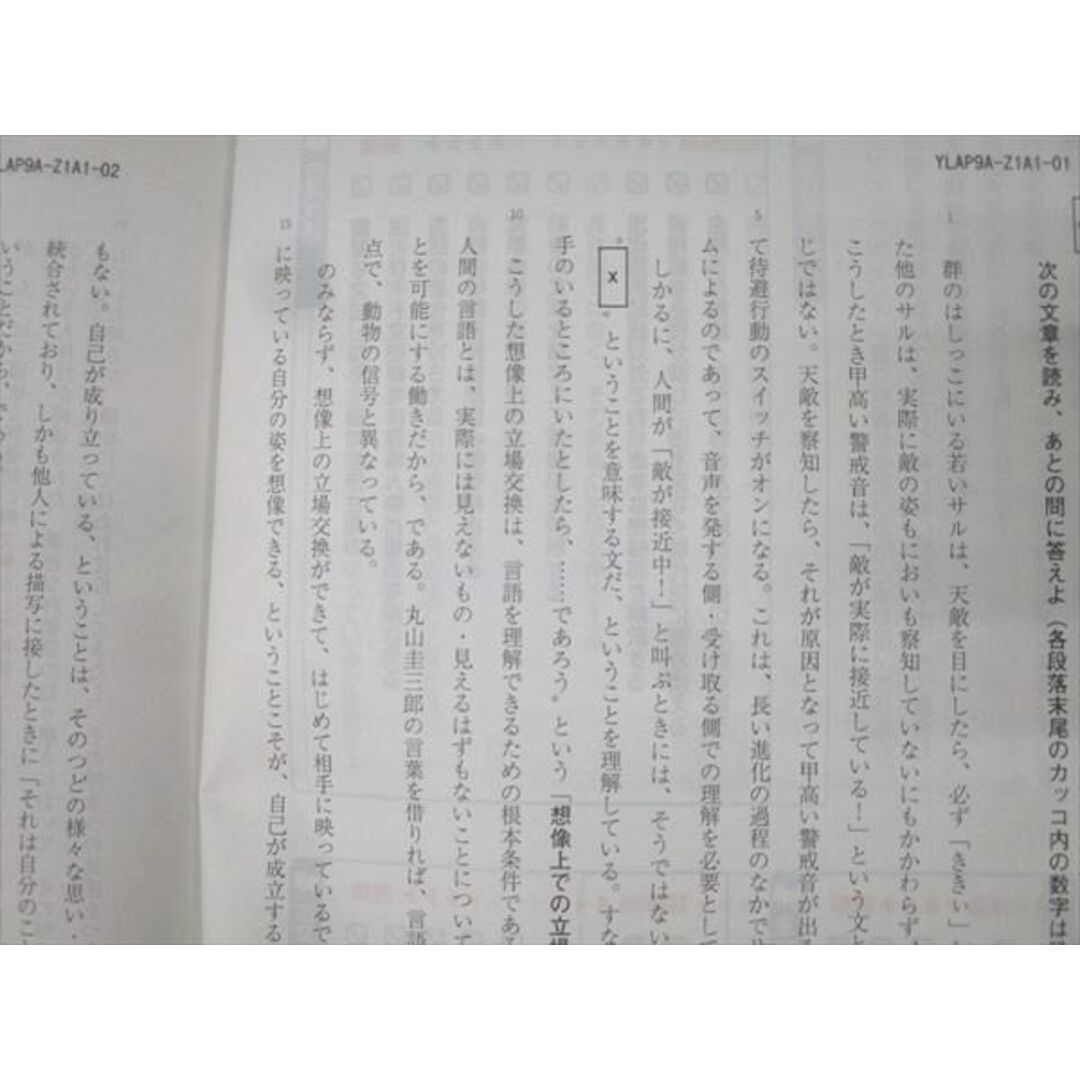 YLAP9A-Z1A1-01
次の文章を読み、あとの問に答えよ（各段落末尾のカッコ内の数字は
1
群のはしっこにいる若いサルは、天敵を目にしたら、必ず「ききい」
た他のサルは、実際に敵の姿もにおいも察知していないにもかかわらず、
こうしたとき甲高い警戒音は、「敵が実際に接近している！」という文と
じではない。天敵を察知したら、それが原因となって甲高い警戒音が出る
5
て待避行動のスイッチがオンになる。これは、長い進化の過程のなかで
ムによるのであって、音声を発する側・受け取る側での理解を必要として
しかるに、人間が「敵が接近中！」と叫ぶときには、そうではない
〝X〟ということを意味する文だ、ということを理解している。すな
手のいるところにいたとしたら、……であろう〟という「想像上での立場
10
こうした想像上の立場交換は、言語を理解できるための根本条件である
人間の言語とは、実際には見えないもの・見えるはずもないことについて
とを可能にする働きだから、である。丸山圭三郎の言葉を借りれば、言語
点で、動物の信号と異なっている。
のみならず、想像上の立場交換ができて、はじめて相手に映っているで
15
に映っている自分の姿を想像できる、ということこそが、自己が成立する
LAP9A-Z1A1-02
もない。自己が成り立っている、ということは、そのつどの様々な思い・
統合されており、しかも他人による描写に接したときに「それは自分のこ
いうことだから、である